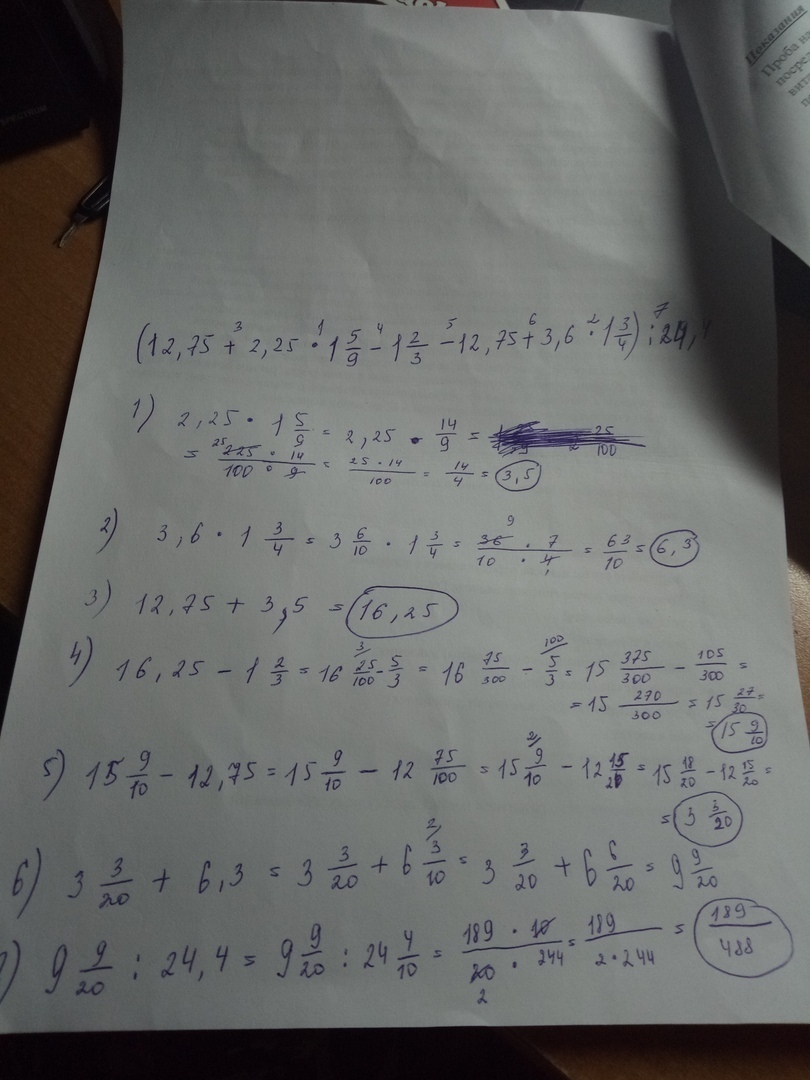 Показания
Проба на
(12,75 + 2,25 · 1 5/9 - 1 2/3 - 12,75 + 3,6 · 1 3/4) : 24,4
3 1 4 5 6 2 7
1) 2,25 · 1 5/9 = 2,25 · 14/9 =
= 225 · 14 / 100 · 9 = 25 · 14 / 100 = 14/4 = 3,5
2) 3,6 · 1 3/4 = 3 6/10 · 1 3/4 = 36 · 7 / 10 · 4 = 63/10 = 6,3
3) 12,75 + 3,5 = 16,25
4) 16,25 - 1 2/3 = 16 25/100 - 5/3 = 16 75/300 - 5/3 = 15 375/300 - 105/300 =
= 15 270/300 = 15 27/30 =
= 15 9/10
5) 15 9/10 - 12,75 = 15 9/10 - 12 75/100 = 15 9/10 - 12 15/20 = 15 18/20 - 12 15/20 =
= 3 3/20
6) 3 3/20 + 6,3 = 3 3/20 + 6 3/10 = 3 3/20 + 6 6/20 = 9 9/20
) 9 9/20 : 24,4 = 9 9/20 : 24 4/10 = 189 · 10 / 20 · 244 = 189 / 2 · 244 = 189/488